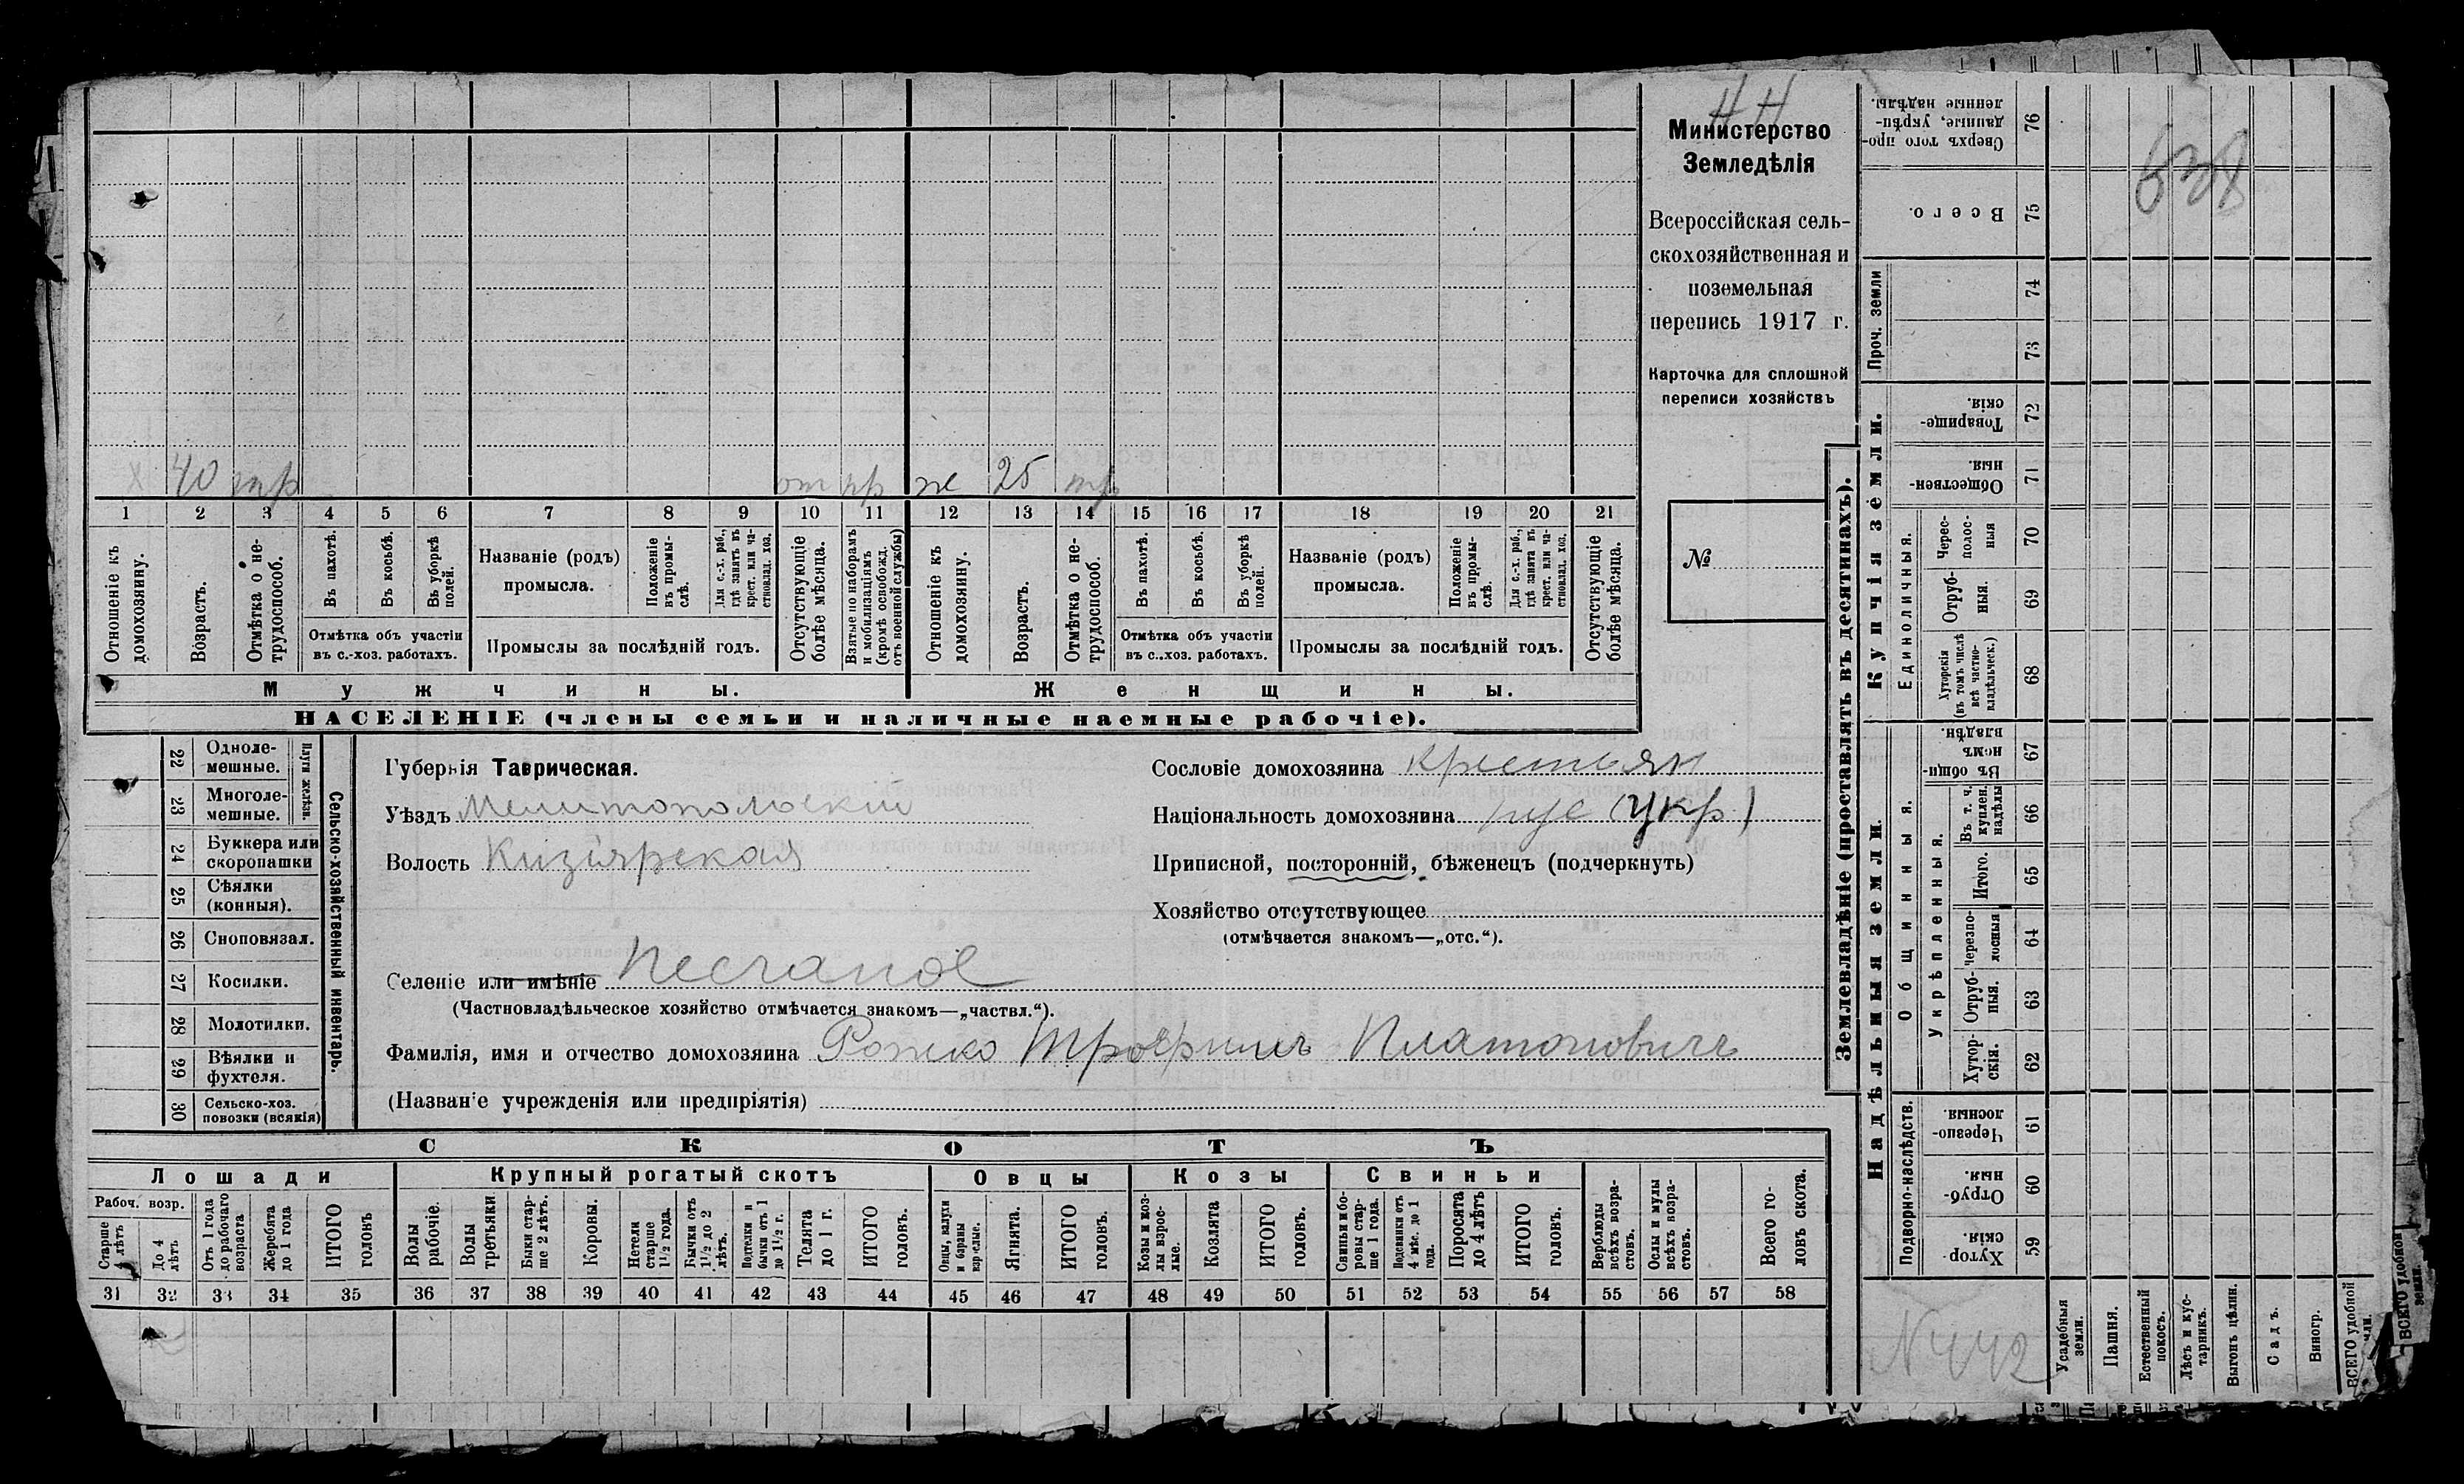 НН
Министерство
Земледѣлія
Всероссійская сель-
скохозяйственная и
поземельная
перепись 1917 г.
Карточка для сплошной
переписи хозяйствъ
№
Х 40 тр от пр ж 25 тр
1 2 3 4 5 6 7 8 9 10 11 12 13 14 15 16 17 18 19 20 21
Отношеніе къ домохозяину.
Возрастъ.
Отмѣтка о не-трудоспособ.
Въ пахотѣ.
Въ косьбѣ.
Въ уборкѣ полей.
Отмѣтка объ участіи
въ с.-хоз. работахъ.
Названіе (родъ)
промысла.
Положеніе въ промы-слѣ.
Для с.-х. раб., гдѣ занятъ въ крест. или ча-стновлад. хоз.
Промыслы за послѣдній годъ.
Отсутствующіе болѣе мѣсяца.
Взятые по наборамъ и мобилизаціямъ (кромѣ освобожд. отъ военной службы)
Отношеніе къ домохозяину.
Возрастъ.
Отмѣтка о не-трудоспособ.
Въ пахотѣ.
Въ косьбѣ.
Въ уборкѣ полей.
Отмѣтка объ участіи
въ с..хоз. работахъ.
Названіе (родъ)
промысла.
Положеніе въ промы-слѣ.
Для с.-х. раб., гдѣ занята въ крест. или ча-стновлад. хоз.
Промыслы за послѣдній годъ.
Отсутствующіе болѣе мѣсяца.
Мужчины. Женщины.
НАСЕЛЕНІЕ (члены семьи и наличные наемные рабочіе).
Губернія Таврическая.
Уѣздъ Мелитопольскій
Волость Кизіярская
Сословіе домохозяина крестьян
Національность домохозяина рус (укр)
Приписной, посторонній, бѣженецъ (подчеркнуть)
Хозяйство отсутствующее
(отмѣчается знакомъ—„отс.“).
Селеніе или имѣніе Песчаное
(Частновладѣльческое хозяйство отмѣчается знакомъ—„частвл.“).
Фамилія, имя и отчество домохозяина Рожко Трофимъ Платоновичъ
(Названіе учрежденія или предпріятія)
Сельско-хозяйственный инвентарь.
Плуги желѣзн.
22 Одноле-мешные.
23 Многоле-мешные.
24 Буккера или скоропашки
25 Сѣялки (конныя).
26 Сноповязал.
27 Косилки.
28 Молотилки.
29 Вѣялки и фухтеля.
30 Сельско-хоз. повозки (всякія)
СКОТЪ
Лошади Крупный рогатый скотъ Овцы Козы Свиньи
Рабоч. возр.
Старше 4 лѣтъ
До 4 лѣтъ
Отъ 1 года до рабочаго возраста
Жеребята до 1 года
ИТОГО головъ
Волы рабочіе.
Волы третьяки
Быки стар-ше 2 лѣтъ.
Коровы.
Нетели старше 1½ года.
Бычки отъ 1½ до 2 лѣтъ.
Подтелки и бычки отъ 1 до 1½ г.
Телята до 1 г.
ИТОГО головъ.
Овцы, валухи и бараны взрослые.
Ягнята.
ИТОГО головъ.
Козы и коз-лы взрос-лые.
Козлята
ИТОГО головъ.
Свиньи и бо-ровы стар-ше 1 года.
Подсвинки отъ 4 мѣс. до 1 года.
Поросята до 4 лѣтъ
ИТОГО головъ.
Верблюды всѣхъ возра-стовъ.
Ослы и мулы всѣхъ возра-стовъ.
Всего го-ловъ скота.
31 32 33 34 35 36 37 38 39 40 41 42 43 44 45 46 47 48 49 50 51 52 53 54 55 56 57 58
Землевладѣніе (проставлять въ десятинахъ).
Надѣльныя земли. Купчія земли. Проч. земли
Подворно-наслѣдств.
Общинныя.
Укрѣпленныя.
Единоличныя.
59 Хутор-скія.
60 Отруб-ныя.
61 Черезпо-лосныя.
62 Хутор-скія.
63 Отруб-ныя.
64 Черезпо-лосныя
65 Итого.
66 Въ т. ч. куплен. надѣлы
67 Въ общи-номъ владѣн.
68 Хуторскія (въ томъ числѣ всѣ частно-владѣльческ.)
69 Отруб-ныя.
70 Черес-полос-ныя
71 Обществен-ныя.
72 Товарище-скія.
73
74
75 Всего.
76 Сверхъ того про-данные, укрѣп-ленные надѣлы.
638
N 442
Усадебныя земли.
Пашня.
Естественный покосъ.
Лѣсъ и кус-тарникъ.
Выгонъ цѣлин.
Садъ.
Виногр.
ВСЕГО удобной земли.
ВСЕГО удобной земли.